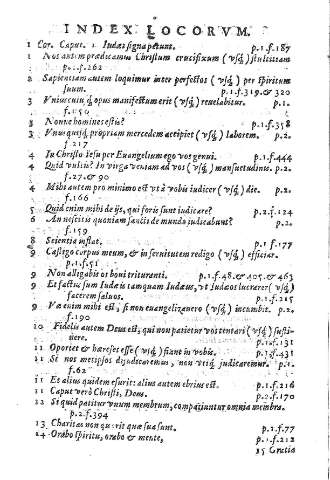 INDEX LOCORVM.
1 Cor. Caput. 1 Iudæi signa petunt. p.1.f.187
1 Nos autem prædicamus Christum crucifixum (vsq́;) stultitiam
p.1.f.262
2 Sapientiam autem loquimur inter perfectos (vsq́;) per spiritum
suum. p.1.f.319.&320
3 Vniuscuiusq; opus manifestum erit (vsq́;) reuelabitur. p.1.
f.150
3 Nonne homines estis? p.1.f.358
3 Vnusquisq; propriam mercedem accipiet (vsq́;) laborem. p.2.
f.217
4 In Christo Iesu per Euangelium ego vos genui. p.1.f.444
4 Quid vultis? In virga veniam ad vos (vsq́;) mansuetudinis. p.2.
f.27.&90
4 Mihi autem pro minimo est vt à vobis iudicer (vsq́;) die. p.2.
f.166
5 Quid enim mihi de ijs, qui foris sunt iudicare? p.2.f.124
6 An nescitis quoniam sancti de mundo iudicabunt? p.2.
f.159
8 Scientia inflat. p.1.f.177
9 Castigo corpus meum, & in seruitutem redigo (vsq́;) efficiar.
p.1.f.51
9 Non alligabis os boui trituranti. p.1.f.48.&405.&463
9 Et factus sum Iudæis tamquam Iudæus, vt Iudæos lucrarer (vsq́;)
facerem saluos. p.1.f.215
9 Væ enim mihi est, si non euangelizauero (vsq́;) incumbit. p.2.
f.190
10 Fidelis autem Deus est, qui non patietur vos tentari (vsq́;) susti-
nere. p.1.f.131
11 Oportet & hæreses esse (vsq́;) fiunt in vobis. p.1.f.431
11 Si nos metipsos dijudicaremus, non vtiq; iudicaremur. p.1.
f.62
11 Et alius quidem esurit: alius autem ebrius est. p.1.f.216
11 Caput verò Christi, Deus. p.1.f.170
12 Et si quid patitur vnum membrum, compatiuntur omnia membra.
p.2.f.394
13 Charitas non quærit quæ sua sunt. p.1.f.77
14 Orabo spiritu, orabo & mente, p.1.f.212
15 Gratia